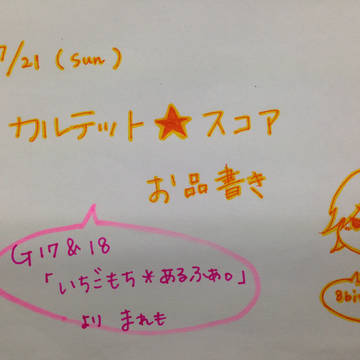 7/21 (sun)
カルテット★スコア
お品書き
G17&18
「いちごもち*あるふぁ。」
より まれも
8bi